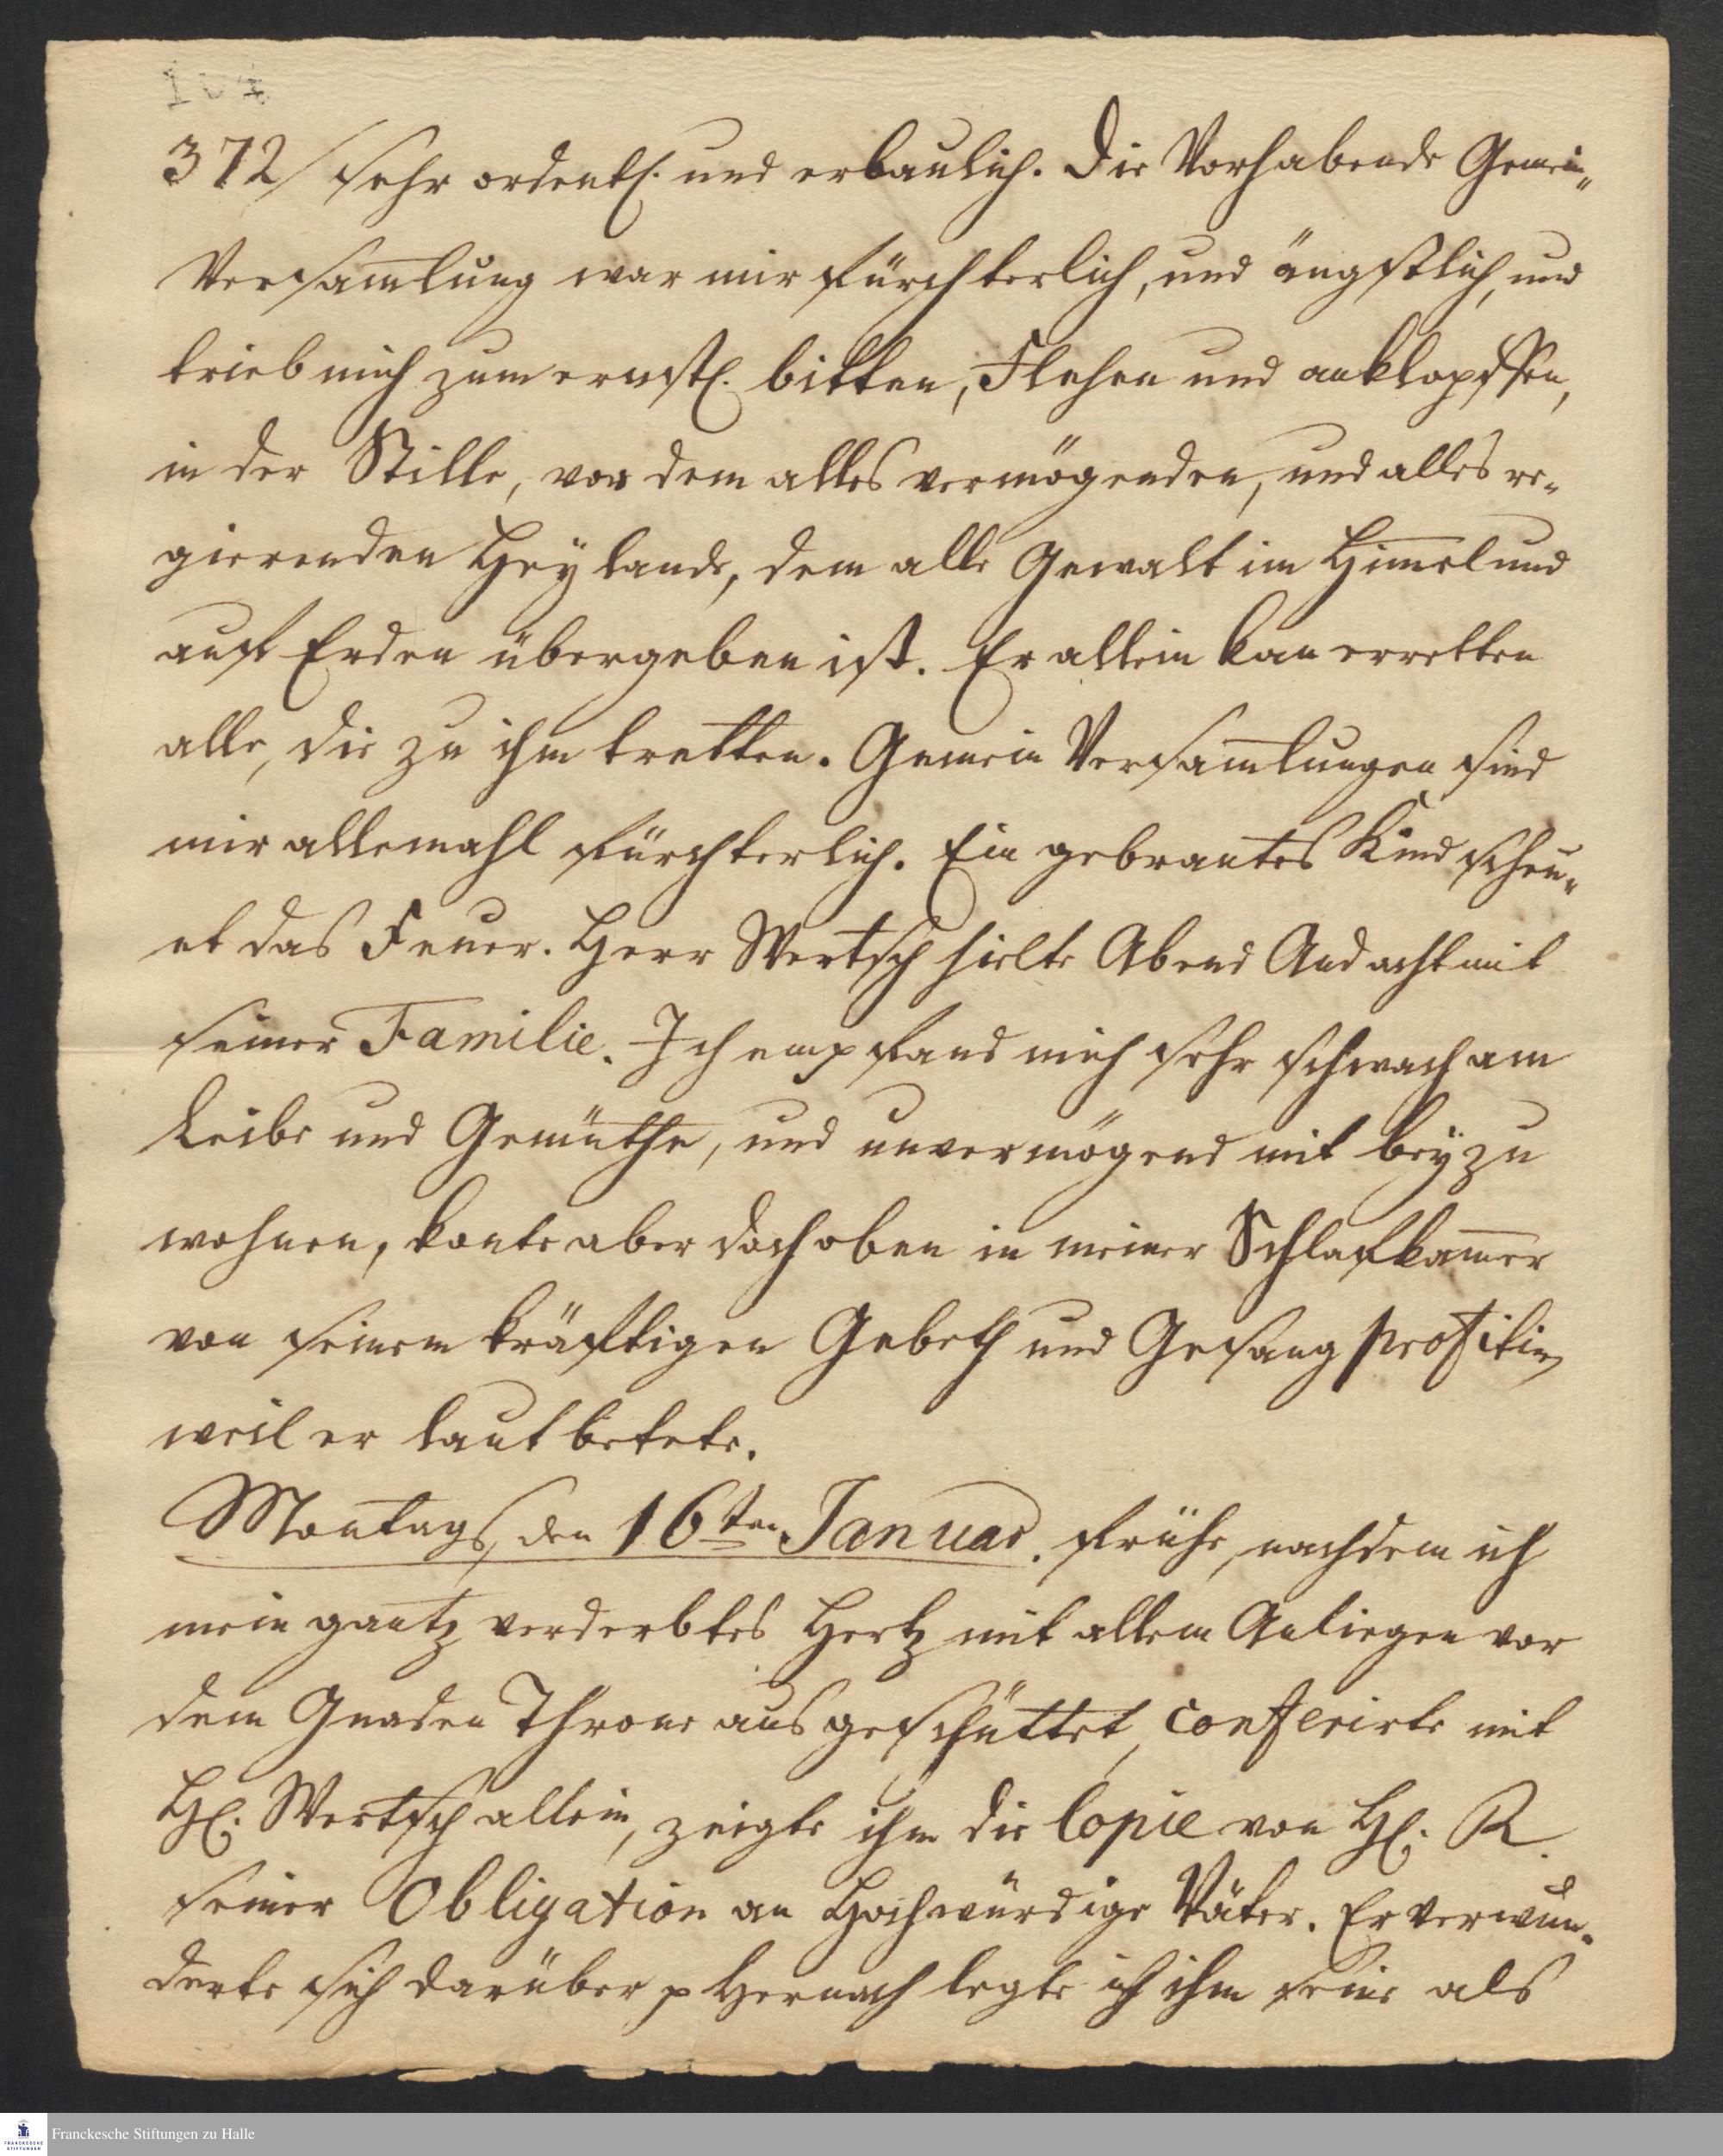 104
372/ sehr ordentl. und erbaulich. Die Vorhabende Gemein„
Versam̅lung war mir fürchterlich, und ängstlich, und
trieb mich zum ernstl. bitten, Flehen und anklopffen,
in der Stille, vor dem alles vermögenden, und alles re„
gierenden Heylande, dem alle Gewalt im Him̅el und
auf Erden übergeben ist. Er allein kan erretten
alle, die zu ihm tretten. Gemein Versam̅lungen sind
mir allemahl fürchterlich. Ein gebrantes Kind scheu„
et das Feuer. Herr Wertsch hielte Abend Andacht mit
seiner Familie. Ich empfand mich sehr schwach am
Leibe und Gemüthe, und unvermögend mit beyzu
wohnen, konte aber doch oben in meiner Schlafkam̅er
von seinem kräftigen Gebeth und Gesang profitiren
weil er laut betete.
Montags, den 16ten Januar. frühe, nachdem ich
mein gantz verderbtes Hertz mit allem Anliegen vor
dem Gnaden Throne ausgeschüttet, conferirte mit
H. Wertsch allein, zeigte ihm die Copie von H. R.
seiner Obligation an Hochwürdige Väter. Er verwun„
derte sich darüber p Hernach legte ich ihm seine als
Franckesche Stiftungen zu Halle
FRANCKESCHE
STIFTUNGEN